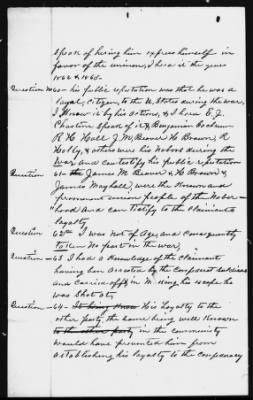 speak of hering him express himself in
favor of the union, I hear it the years
1864 & 1865.
Question No 60 - his public reputation was that he was a
loyal, citizen to the U. States during the war,
I Know it by his actions, & I have E. J.
Chastine Speak of it & Benjamin
R H Hall J. M. Beaver H Brown, R
Holly, & others were his nabors during the
War and can testify his public reputation
Question 61 - the James M Beaver & H Brown &
James Mayhall, were the Known and
prominent union people of the Nabor-
hood and can testify to the claimants
Loyalty
Question 62 - I was not of age and consequently
no part in the war,
Question 63 I had a Knowledge of the claimant
having ben arrested by the Confederate Soldiers
and carried off & in making his escape he
was Shot at,
Question - 64 - It being His Loyalty to the
other party, the same being well Known
to the other party in the community
would have prevented him from
establishing his loyalty to the Confederacy